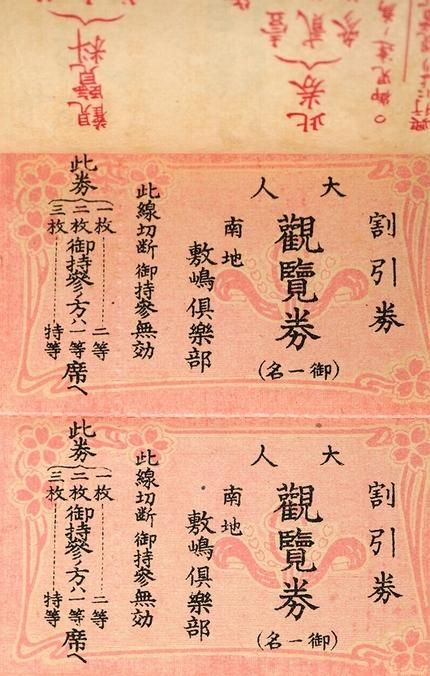 此券
壹
貳
參
觀覽料
割引券
大人
觀覽券
(御一名)
南地
敷嶋倶樂部
此線切断御持參無効
此券
一枚……二等
二枚御持參ノ方ハ一等席へ
三枚……特等
割引券
大人
觀覽券
(御一名)
南地
敷嶋倶樂部
此線切断御持參無効
此券
一枚……二等
二枚御持參ノ方ハ一等席へ
三枚……特等